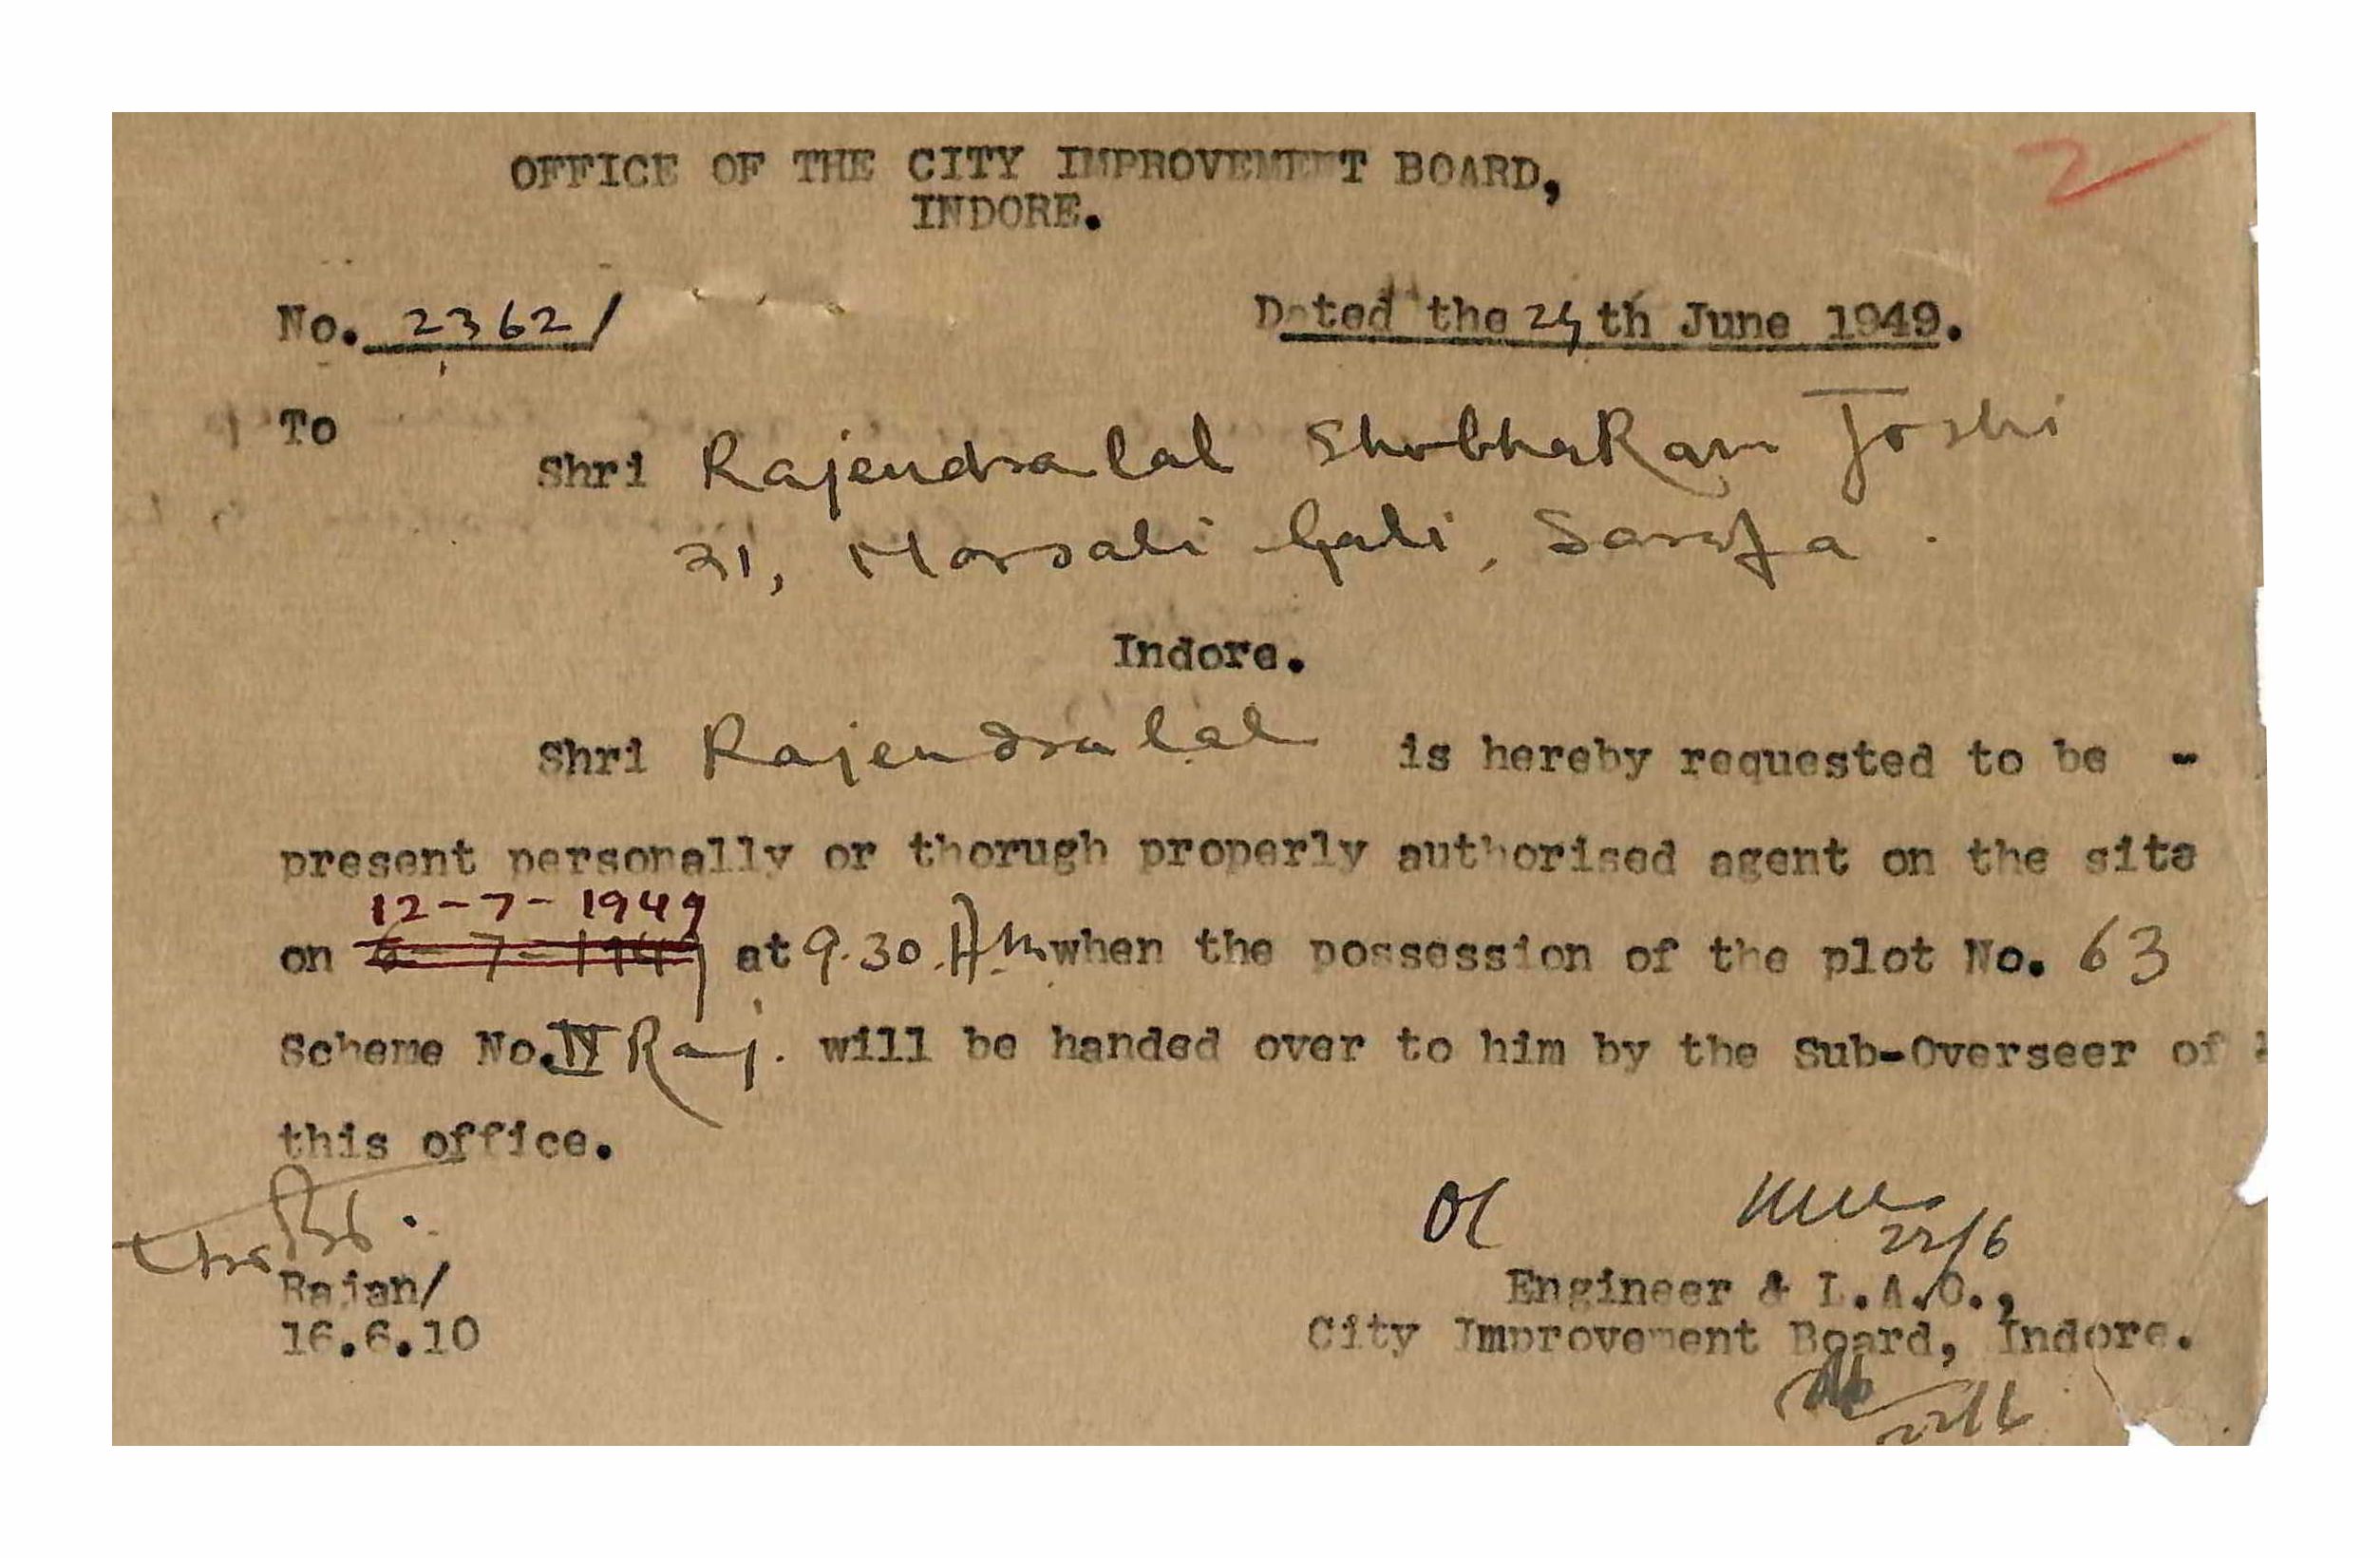 2
OFFICE OF THE CITY IMPROVEMENT BOARD,
INDORE.
No. 2362/
Dated the 24th June 1949.
To
Shri Rajendralal ShobhaRam Joshi
31, Morsali Gali, Sarafa.
Indore.
Shri Rajendralal is hereby requested to be -
present personally or thorugh properly authorised agent on the site
12-7-1949
on 6-7-1949 at 9.30 A.M. when the possession of the plot No. 63
Scheme No. IV Raj. will be handed over to him by the Sub-Overseer of
this office.
22/6
Rajan/
16.6.10
Engineer & L.A.O.,
City Improvement Board, Indore.
22/6